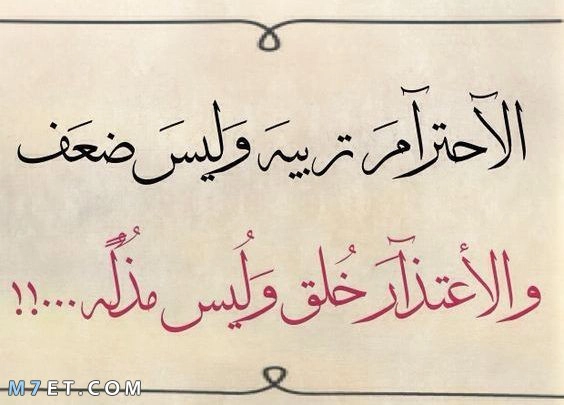 الآحترآمَ تربيهَ وَليسَ ضعَف
والأعتذآرَ خُلق وَلُيس مذُلٌه...!!
M7ET.COM